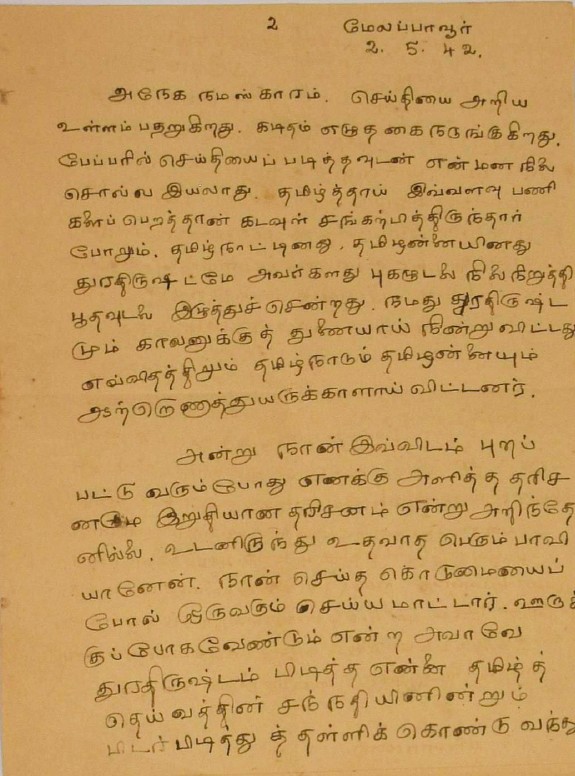 உ மேலப்பாவூர்
2. 5. 42.
அநேக நமஸ்காரம். செய்தியை அறிய
உள்ளம் பதறுகிறது. கடிதம் எழுத கை நடுங்குகிறது.
பேப்பரில் செய்தியைப் படித்தவுடன் என் மன நிலை
சொல்ல இயலாது. தமிழ்த்தாய் இவ்வளவு பணி
களைப் பெறத்தான் கடவுள் சங்கற்பித்திருந்தார்
போலும். தமிழ்நாட்டினது, தமிழன்னையினது
துரதிருஷ்டமே அவர்களது புகழுடலை நிலைநிறுத்தி
பூதவுடலை இழுத்துச் சென்றது. நமது துரதிருஷ்ட
மும் காலனுக்குத் துணையாய் நின்று விட்டது
எவ்விதத்திலும் தமிழ்நாடும் தமிழன்னையும்
துயருக்காளாய் விட்டனர்.
அன்று நான் இவ்விடம் புறப்
பட்டு வரும்போது எனக்கு அளித்த தரிச
னமே இறுதியான தரிசனம் என்று அறிந்தே
னில்லை. உடனிருந்து உதவாத பெரும் பாவி
யானேன். நான் செய்த கொடுமையைப்
போல் ஒருவரும் செய்ய மாட்டார். ஊருக்
குப்போகவேண்டும் என்ற அவாவே
துரதிருஷ்டம் பிடித்த என்னை தமிழ்த்
தெய்வத்தின் சந்நதியினின்றும்
பிடர்பிடித்து த் தள்ளிக் கொண்டு வந்து